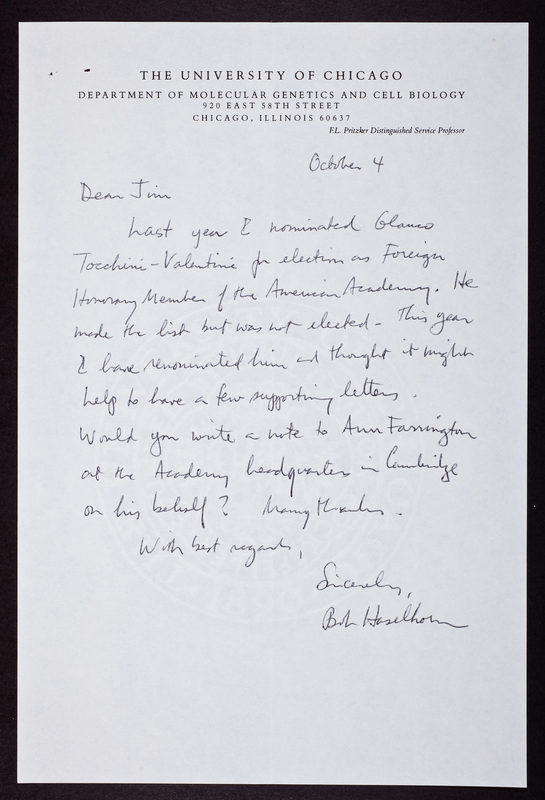 THE UNIVERSITY OF CHICAGO
DEPARTMENT OF MOLECULAR GENETICS AND CELL BIOLOGY
920 EAST 58TH STREET
CHICAGO, ILLINOIS 60637
F.L. Pritzker Distinguished Service Professor
October 4
Dear Jim
Last year I nominated Glauco
Tocchini-Valentini for election as Foreign
Honorary Member of the American Academy. He
made the list but was not elected. This year
I have renominated him and thought it might
help to have a few supporting letters.
Would you write a note to Ann Farrington
at the Academy headquarters in Cambridge
on his behalf? Many thanks.
With best regards,
Sincerely,
Bob Haselkorn